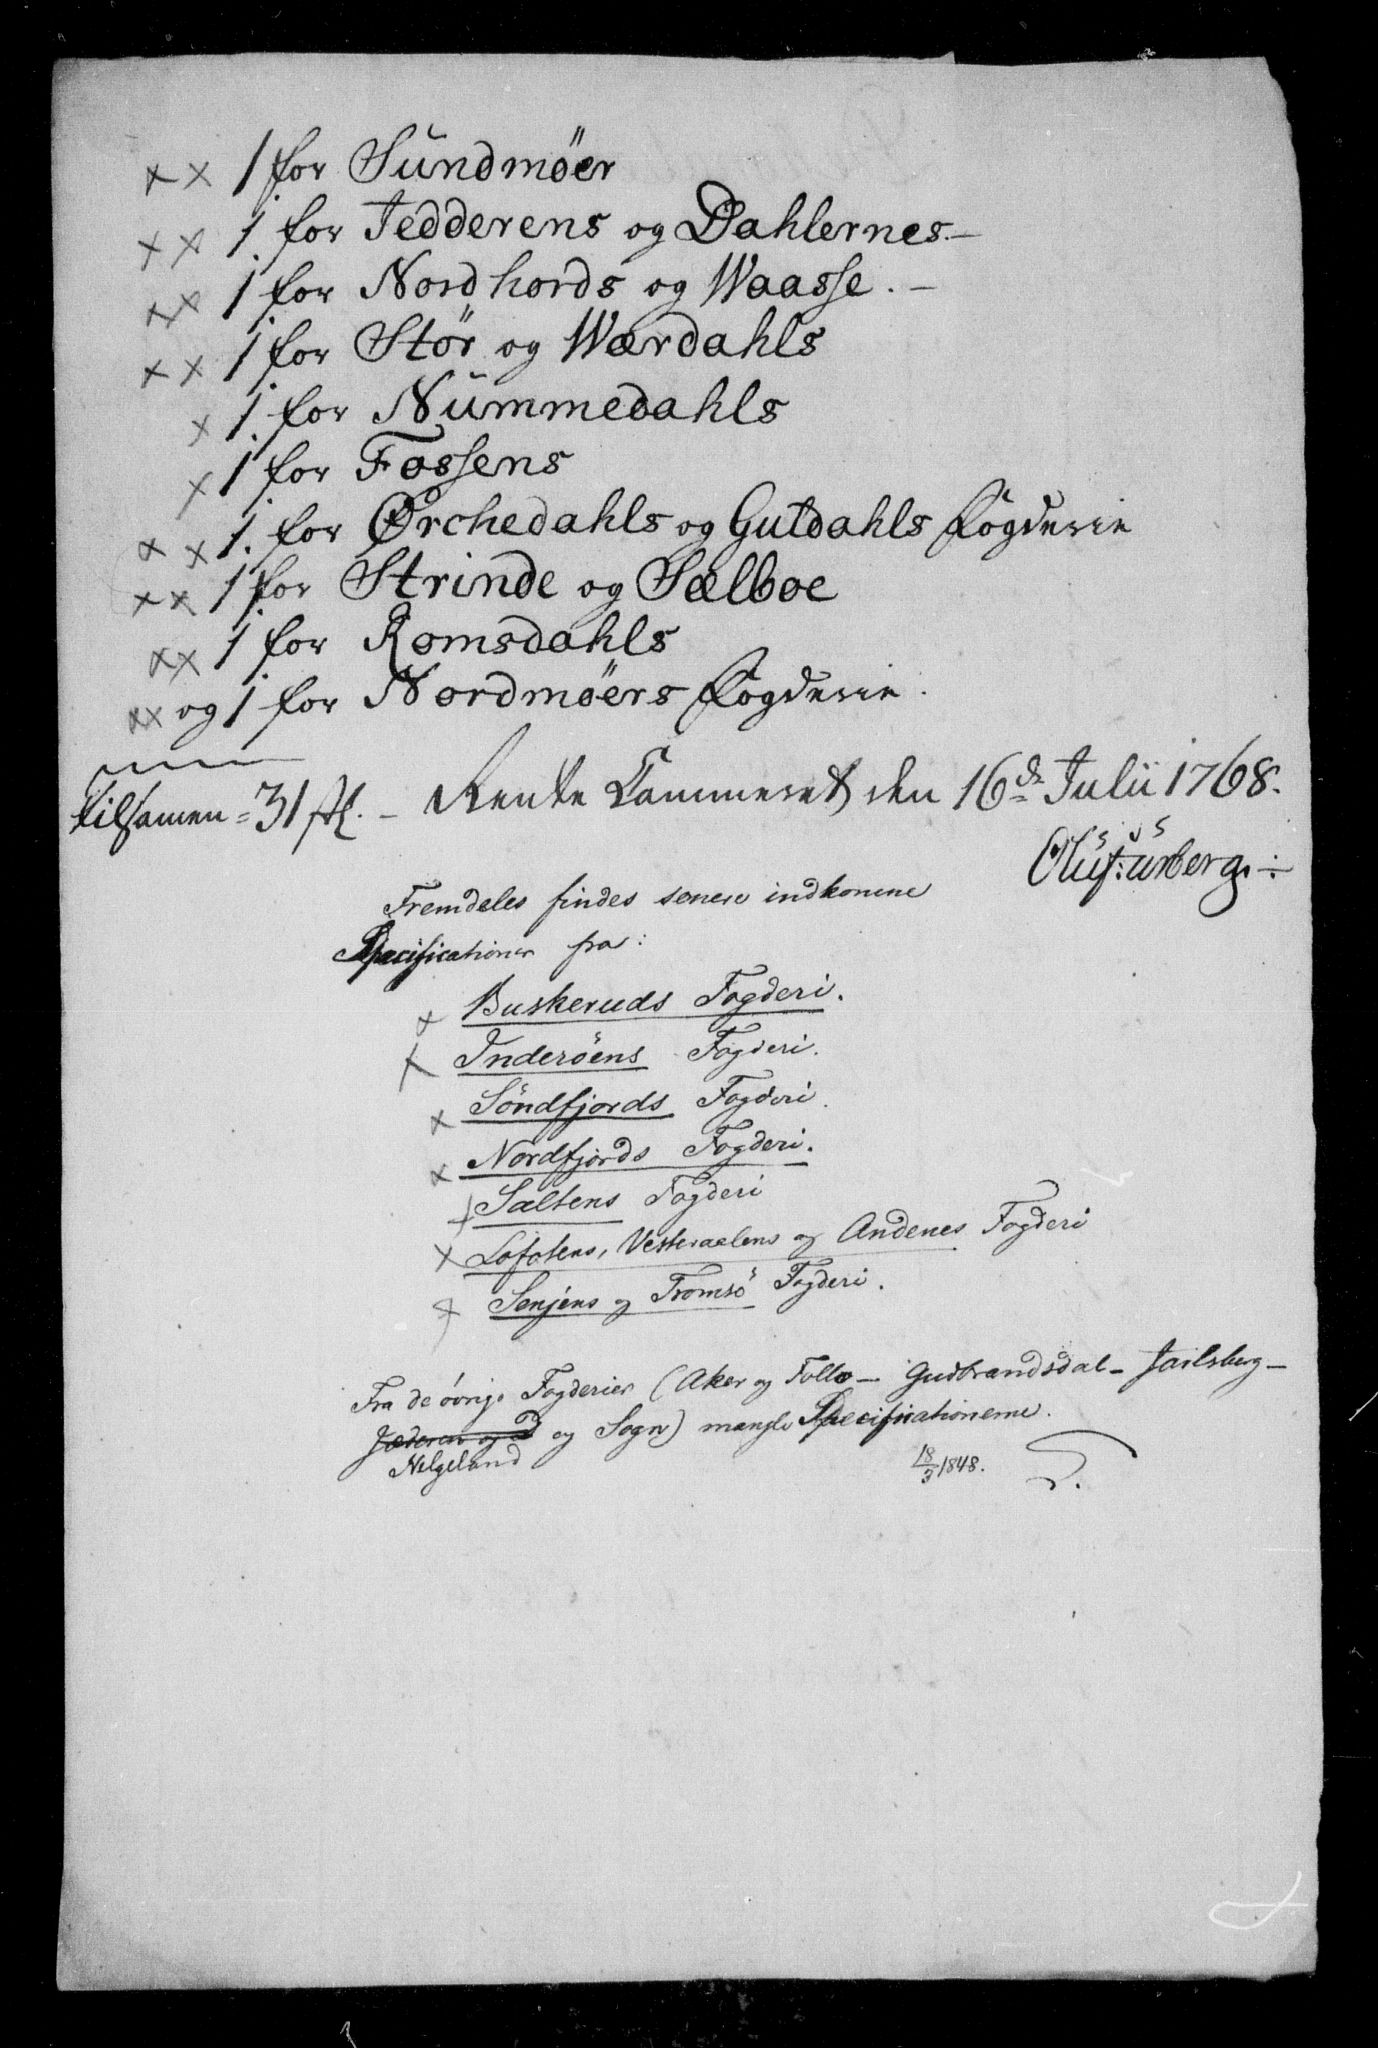 ×× 1 for Sundmöer
×× 1 for Jedderens og Dahlernes.—
×× 1 for Nordhords og Waasse. —
×× 1 for Stör og Wærdahls
× 1 for Nummedahls
× 1 for Fossens
× × 1. for Ørchedahls og Guldahls Fogderie
×× 1 for Strinde og Sælboe
×× 1 for Romsdahls
×× og 1 for Nordmöers Fogderie.
tilsamen = 31 st. — Rente Cammeret den 16de Julii 1768.
Oluf:
Fremdeles findes senere indkomne
Specificationer fra:
× Buskeruds Fogderi.
× Inderöens Fogderi.
× Söndfjords Fogderi.
× Nordfjords Fogderi.
× Saltens Fogderi
× Lofotens, Vesteraalens og Andenes Fogderi
× Senjens og Tromsö Fogderi.
Fra de övrige Fogderier (Aker og Follo — Gudbrandsdal — Jarlsberg —
Jæderen og D og Sogn) mangle Specificationerne.
Helgeland
18/3 1848.